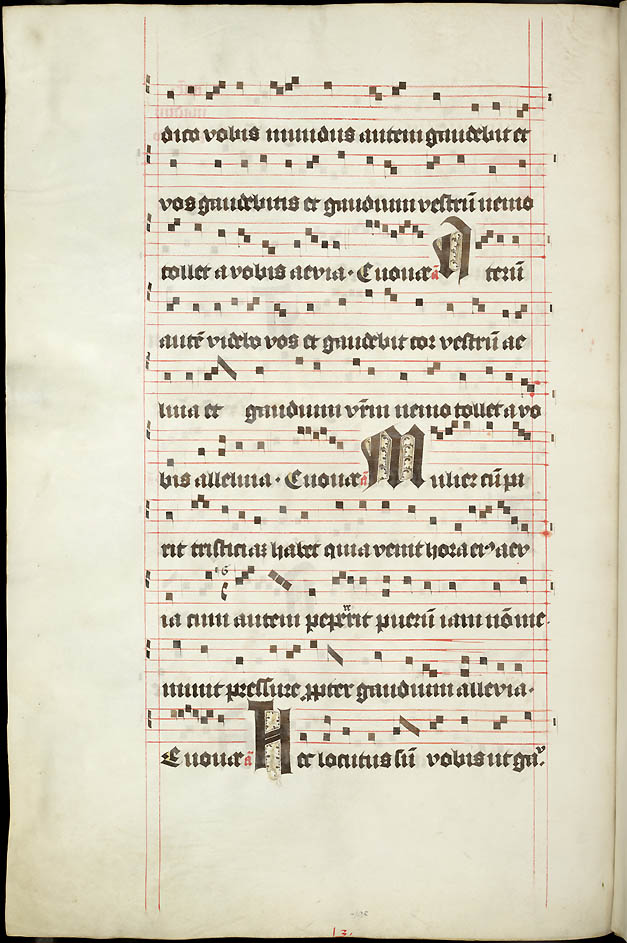 dico vobis mundus autem gaudebit et
vos gaudebitis et gaudium vestrū nemo
tollet a vobis aevia · Euouae ā Iterū
autē videbo vos et gaudebit cor vestrū ae
luia et gaudium vr̄m nemo tollet a vo
bis alleluia · Euouae ā Mulier cū pa
rit tristiciaz habet quia venit hora eiꝰ aev
ia cum autem peperit puerū iam nō me
minit pressure ꝓpter gaudium allevia ·
Euouae ā Hec locutus sū vobis ut ga
13.